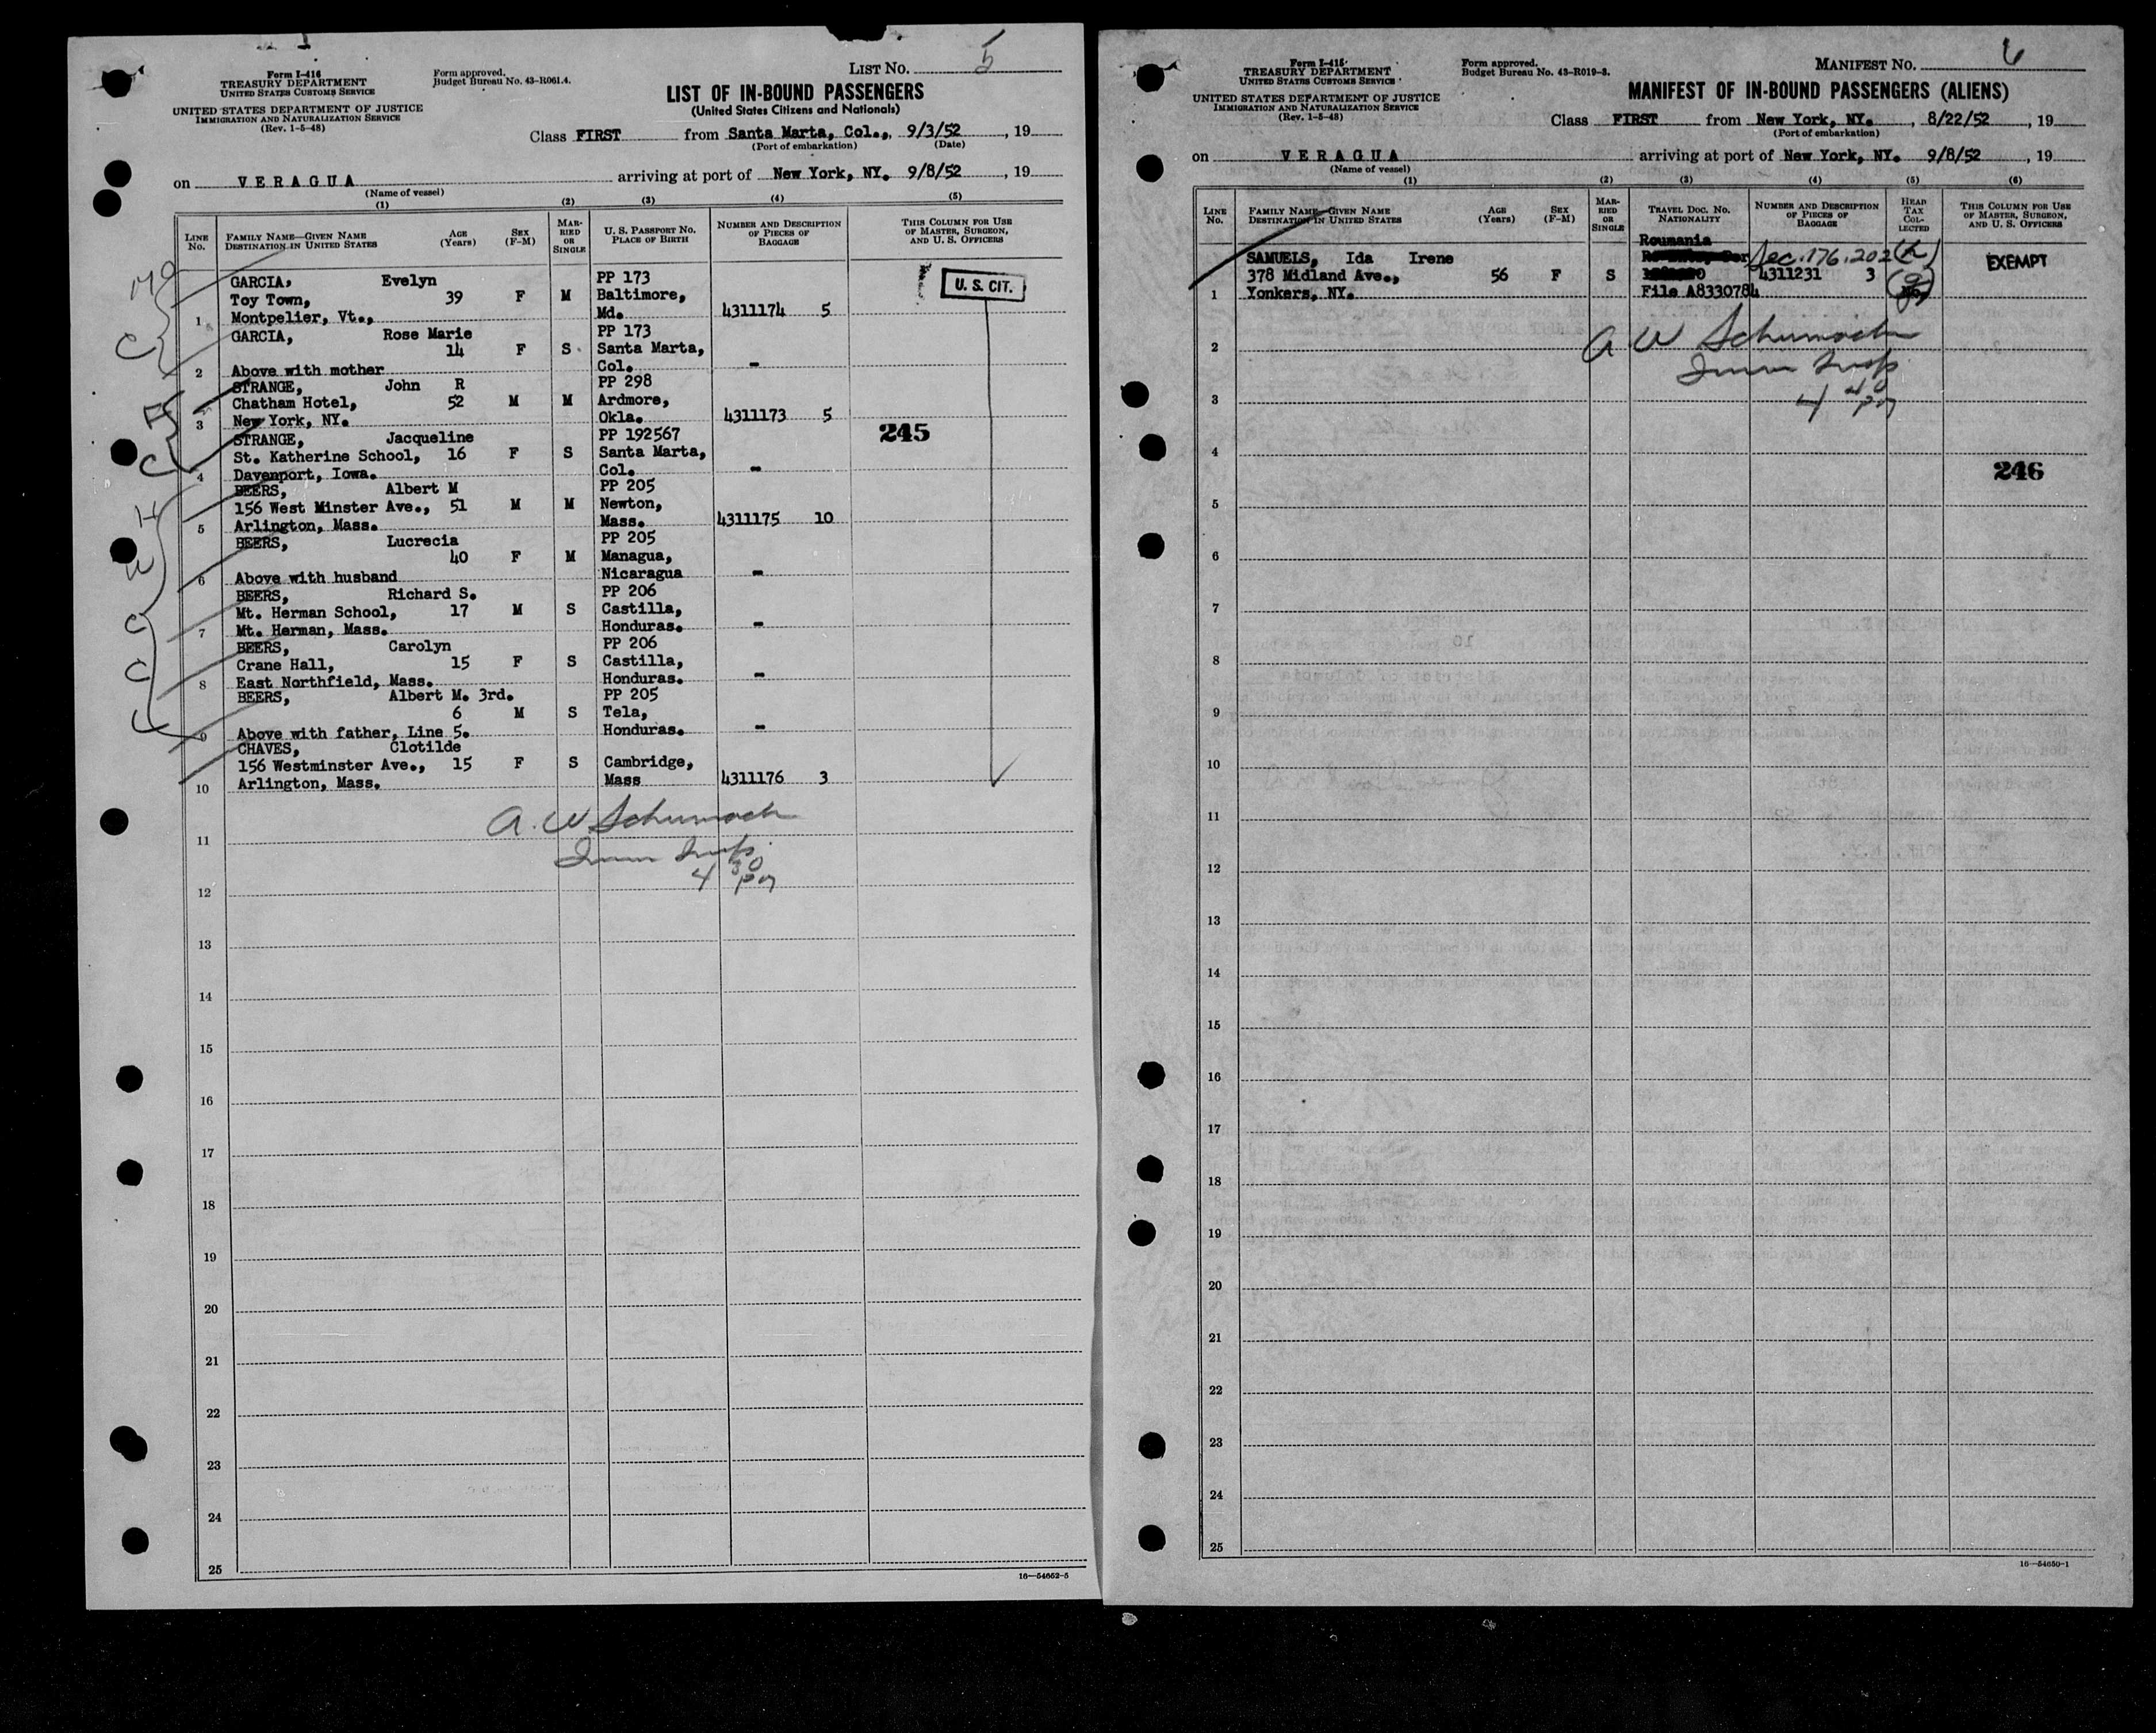 Form I-416
TREASURY DEPARTMENT
UNITED STATES CUSTOMS SERVICE
UNITED STATES DEPARTMENT OF JUSTICE
IMMIGRATION AND NATURALIZATION SERVICE
(Rev. 1-5-48)
Form approved.
Budget Bureau No. 43-R061.4.
LIST NO. 5
LIST OF IN-BOUND PASSENGERS
(United States Citizens and Nationals)
Class FIRST from Santa Marta, Col., 9/3/52, 19
(Port of embarkation) (Date)
on VERAGUA arriving at port of New York, NY. 9/8/52, 19
(Name of vessel)
(1) (2) (3) (4) (5)
LINE NO.
FAMILY NAME—GIVEN NAME
DESTINATION IN UNITED STATES
AGE (Years)
SEX (F-M)
MARRIED OR SINGLE
U. S. PASSPORT NO.
PLACE OF BIRTH
NUMBER AND DESCRIPTION OF PIECES OF BAGGAGE
THIS COLUMN FOR USE OF MASTER, SURGEON, AND U. S. OFFICERS
U. S. CIT.
GARCIA, Evelyn PP 173
Toy Town, 39 F M Baltimore,
1 Montpelier, Vt., Md. 4311174 5
GARCIA, Rose Marie PP 173
14 F S Santa Marta,
2 Above with mother Col. -
STRANGE, John R PP 298
Chatham Hotel, 52 M M Ardmore,
3 New York, NY. Okla. 4311173 5
245
STRANGE, Jacqueline PP 192567
St. Katherine School, 16 F S Santa Marta,
4 Davenport, Iowa. Col. -
BEERS, Albert M PP 205
156 West Minster Ave., 51 M M Newton,
5 Arlington, Mass. Mass. 4311175 10
BEERS, Lucrecia PP 205
40 F M Managua,
6 Above with husband Nicaragua -
BEERS, Richard S. PP 206
Mt. Herman School, 17 M S Castilla,
7 Mt. Herman, Mass. Honduras. -
BEERS, Carolyn PP 206
Crane Hall, 15 F S Castilla,
8 East Northfield, Mass. Honduras. -
BEERS, Albert M. 3rd. PP 205
6 M S Tela,
9 Above with father, Line 5. Honduras. -
CHAVES, Clotilde
156 Westminster Ave., 15 F S Cambridge,
10 Arlington, Mass. Mass 4311176 3
A. W Schumach
11
Imm Insp.
4 30 pm
12
13
14
15
16
17
18
19
20
21
22
23
24
25
16—54652-5
Form I-415
TREASURY DEPARTMENT
UNITED STATES CUSTOMS SERVICE
UNITED STATES DEPARTMENT OF JUSTICE
IMMIGRATION AND NATURALIZATION SERVICE
(Rev. 1-5-48)
Form approved.
Budget Bureau No. 43-R019-3.
MANIFEST NO. 6
MANIFEST OF IN-BOUND PASSENGERS (ALIENS)
Class FIRST from New York, NY., 8/22/52, 19
(Port of embarkation)
on VERAGUA arriving at port of New York, NY. 9/8/52, 19
(Name of vessel)
(1) (2) (3) (4) (5) (6)
LINE NO.
FAMILY NAME—GIVEN NAME
DESTINATION IN UNITED STATES
AGE (Years)
SEX (F-M)
MARRIED OR SINGLE
TRAVEL DOC. NO.
NATIONALITY
NUMBER AND DESCRIPTION OF PIECES OF BAGGAGE
HEAD TAX COLLECTED
THIS COLUMN FOR USE OF MASTER, SURGEON, AND U. S. OFFICERS
Roumania
SAMUELS, Ida Irene Sec. 176.202 EXEMPT
378 Midland Ave., 56 F S 4311231 3
1 Yonkers, NY. File A8330784
A W Schumach
2
Imm Insp
4 40 pm
3
4
246
5
6
7
8
9
10
11
12
13
14
15
16
17
18
19
20
21
22
23
24
25
16—54650-1